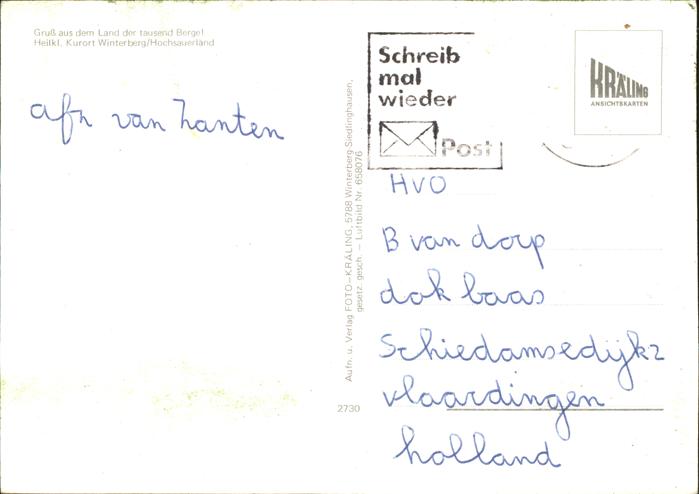 Gruß aus dem Land der tausend Berge!
Heilkl. Kurort Winterberg/Hochsauerland
afz van Zanten
Aufn. u. Verlag FOTO-KRÄLING, 5788 Winterberg-Siedlinghausen,
gesetz. gesch. – Luftbild Nr. 658076
2730
Schreib
mal
wieder
Post
KRÄLING
ANSICHTSKARTEN
HVO
B van dorp
dok baas
Schiedamsedijk 2
vlaardingen
holland